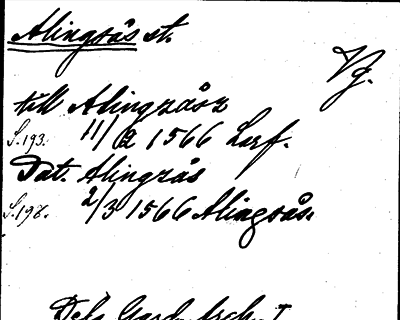 Alingsås st.
Vg.
till Alingzåsz
S.193. 11/2 1566 Larf.
Dat. Alingzås
S.198. 2/3 1566 Alingsås.
Dela Gard. Arch. I